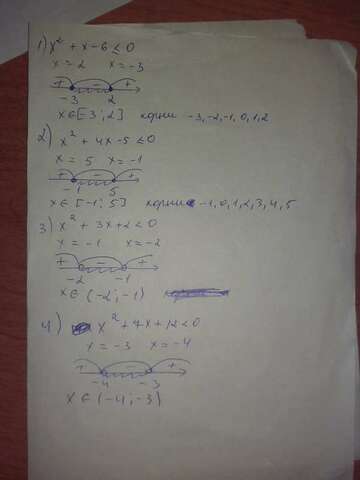 1) x² + x - 6 ≤ 0
x = 2 x = -3
+ - +
-3 2
x ∈ [-3; 2] корни -3, -2, -1, 0, 1, 2
2) x² + 4x - 5 ≤ 0
x = 5 x = -1
+ - +
-1 5
x ∈ [-1; 5] корни -1, 0, 1, 2, 3, 4, 5
3) x² + 3x + 2 < 0
x = -1 x = -2
+ - +
-2 -1
x ∈ (-2; -1)
4) x² + 7x + 12 < 0
x = -3 x = -4
+ - +
-4 -3
x ∈ (-4; -3)